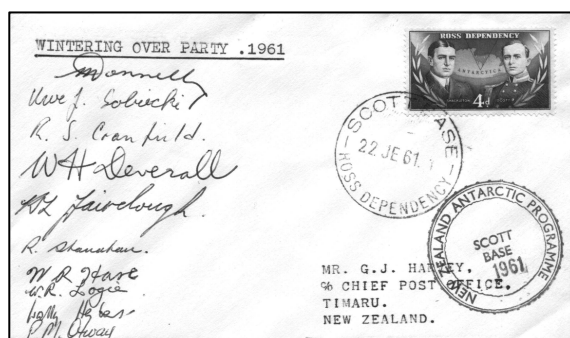 WINTERING OVER PARTY .1961
Uwe J. Sobiecki
R. S. Cranfield.
W H Deverall
Fairclough.
R. Shanahan.
W R Hare
W.R. Logie
P M Otway
ROSS DEPENDENCY
ANTARCTICA
4d
SCOTT BASE
22 JE 61.
ROSS DEPENDENCY
NEW ZEALAND ANTARCTIC PROGRAMME
SCOTT
BASE
1961
MR. G.J. HARVEY,
% CHIEF POST OFFICE.
TIMARU.
NEW ZEALAND.